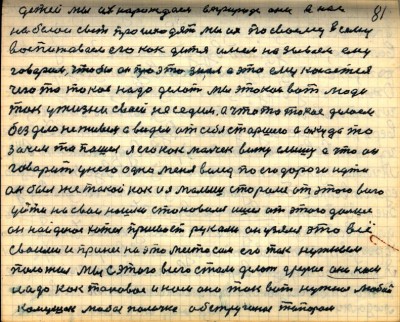 детей мы их нарождаем в природе они в нас 81
на белой свет происходят мы их по своему всему
воспитываем его как дитя имем называем ему
говорим, чтобы он про это знал а это ему касается
чего то такое надо делат мы такие вот люди
так у жизни своей не седим, а что то такое делаем
без дела не живем а видем от себя старшего а откуда то
зачем то пашел я его как малчек вижу слышу а что он
говорит у него одно меня вслед по его дороге идти
он был же такой как и я малыш старался от этого всего
уйти на свои ножки становился ишел от этого дальше
он найденое хотел привести руками он узял это всё
своими и принес на это место сам его так нужным
положил мы с этого всего стали делат другие они нам
надо как таковое и нам оно так вот нужна любой
камушек любая палачка обструченая топором